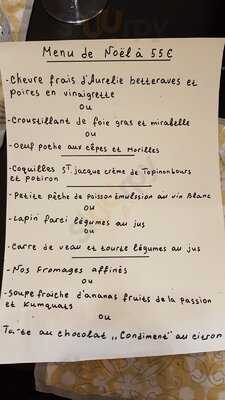 Menu de Noël à 55€
-Chevre frais d'Aurelie betteraves et
poires en vinaigrette
ou
-Croustillant de foie gras et mirabelle
ou
-Oeuf poche aux cêpes et Morilles
-Coquilles ST Jacque crème de Topinambours
et potiron
-Petite pêche de poisson émulssion au vin Blanc
ou
-Lapin farci légumes au jus
ou
-Carre de veau et tourte légumes au jus
-Nos fromages affinés
ou
-Soupe fraîche d'ananas fruits de la passion
et Kumquats
ou
Tarte au chocolat ,,Condiment" au citron